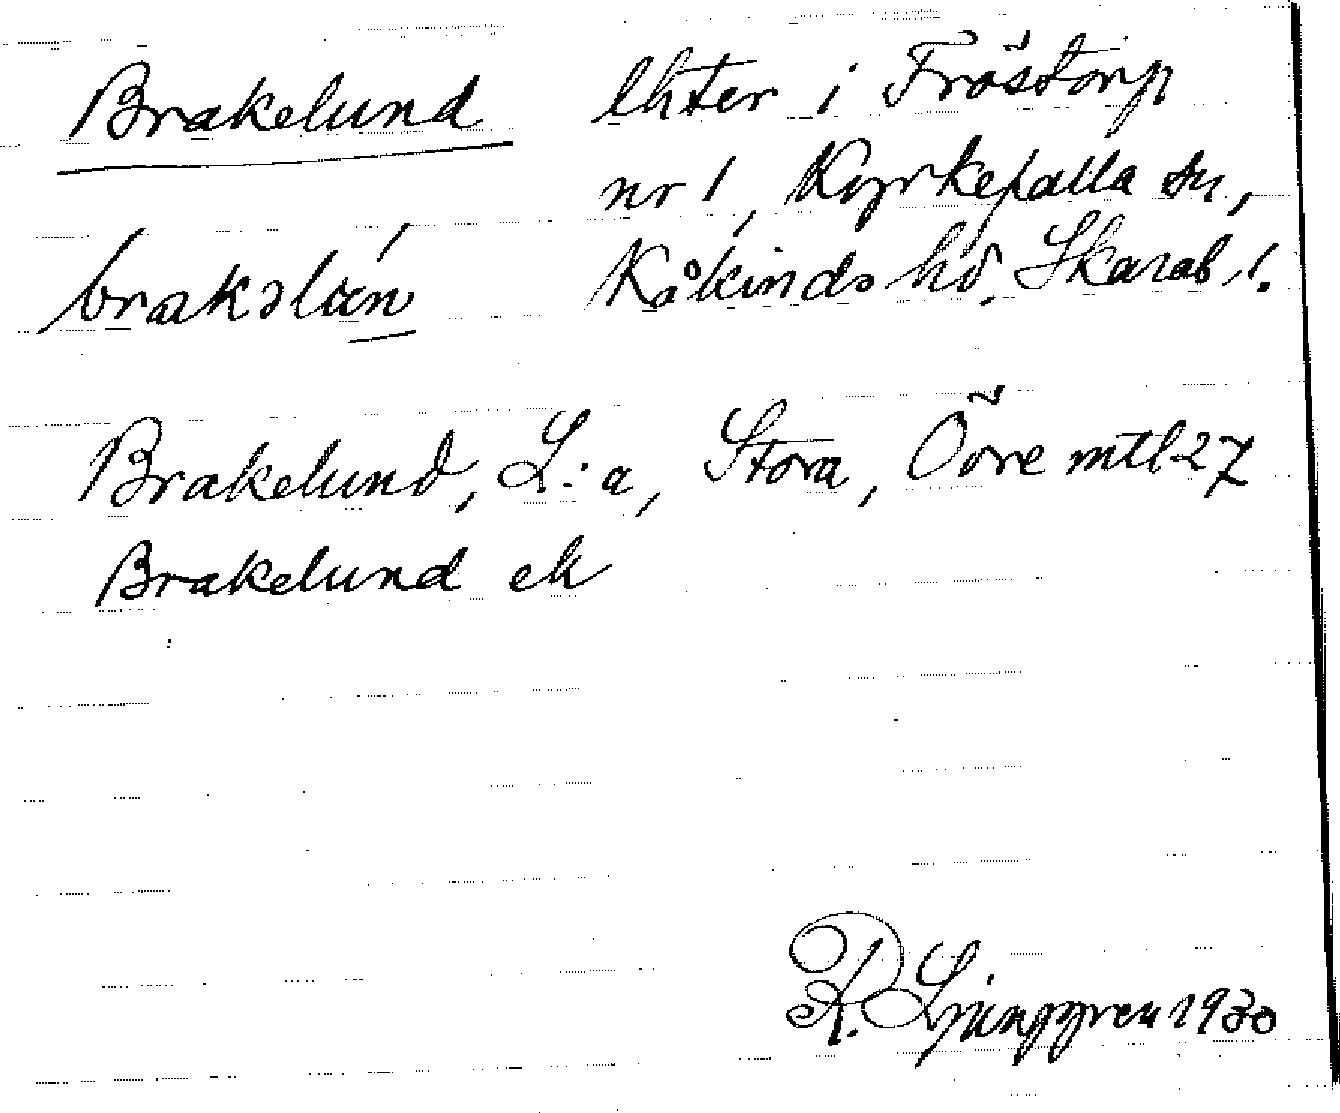 Brakelund lhter i Fröstorp
nr 1, Kyrkefalla sn,
brakəlán Kåkinds hd. Skarab. l.
Brakelund, L:a, Stora, Övre mtl 27
Brakelund ek
R. Ljunggren 1930